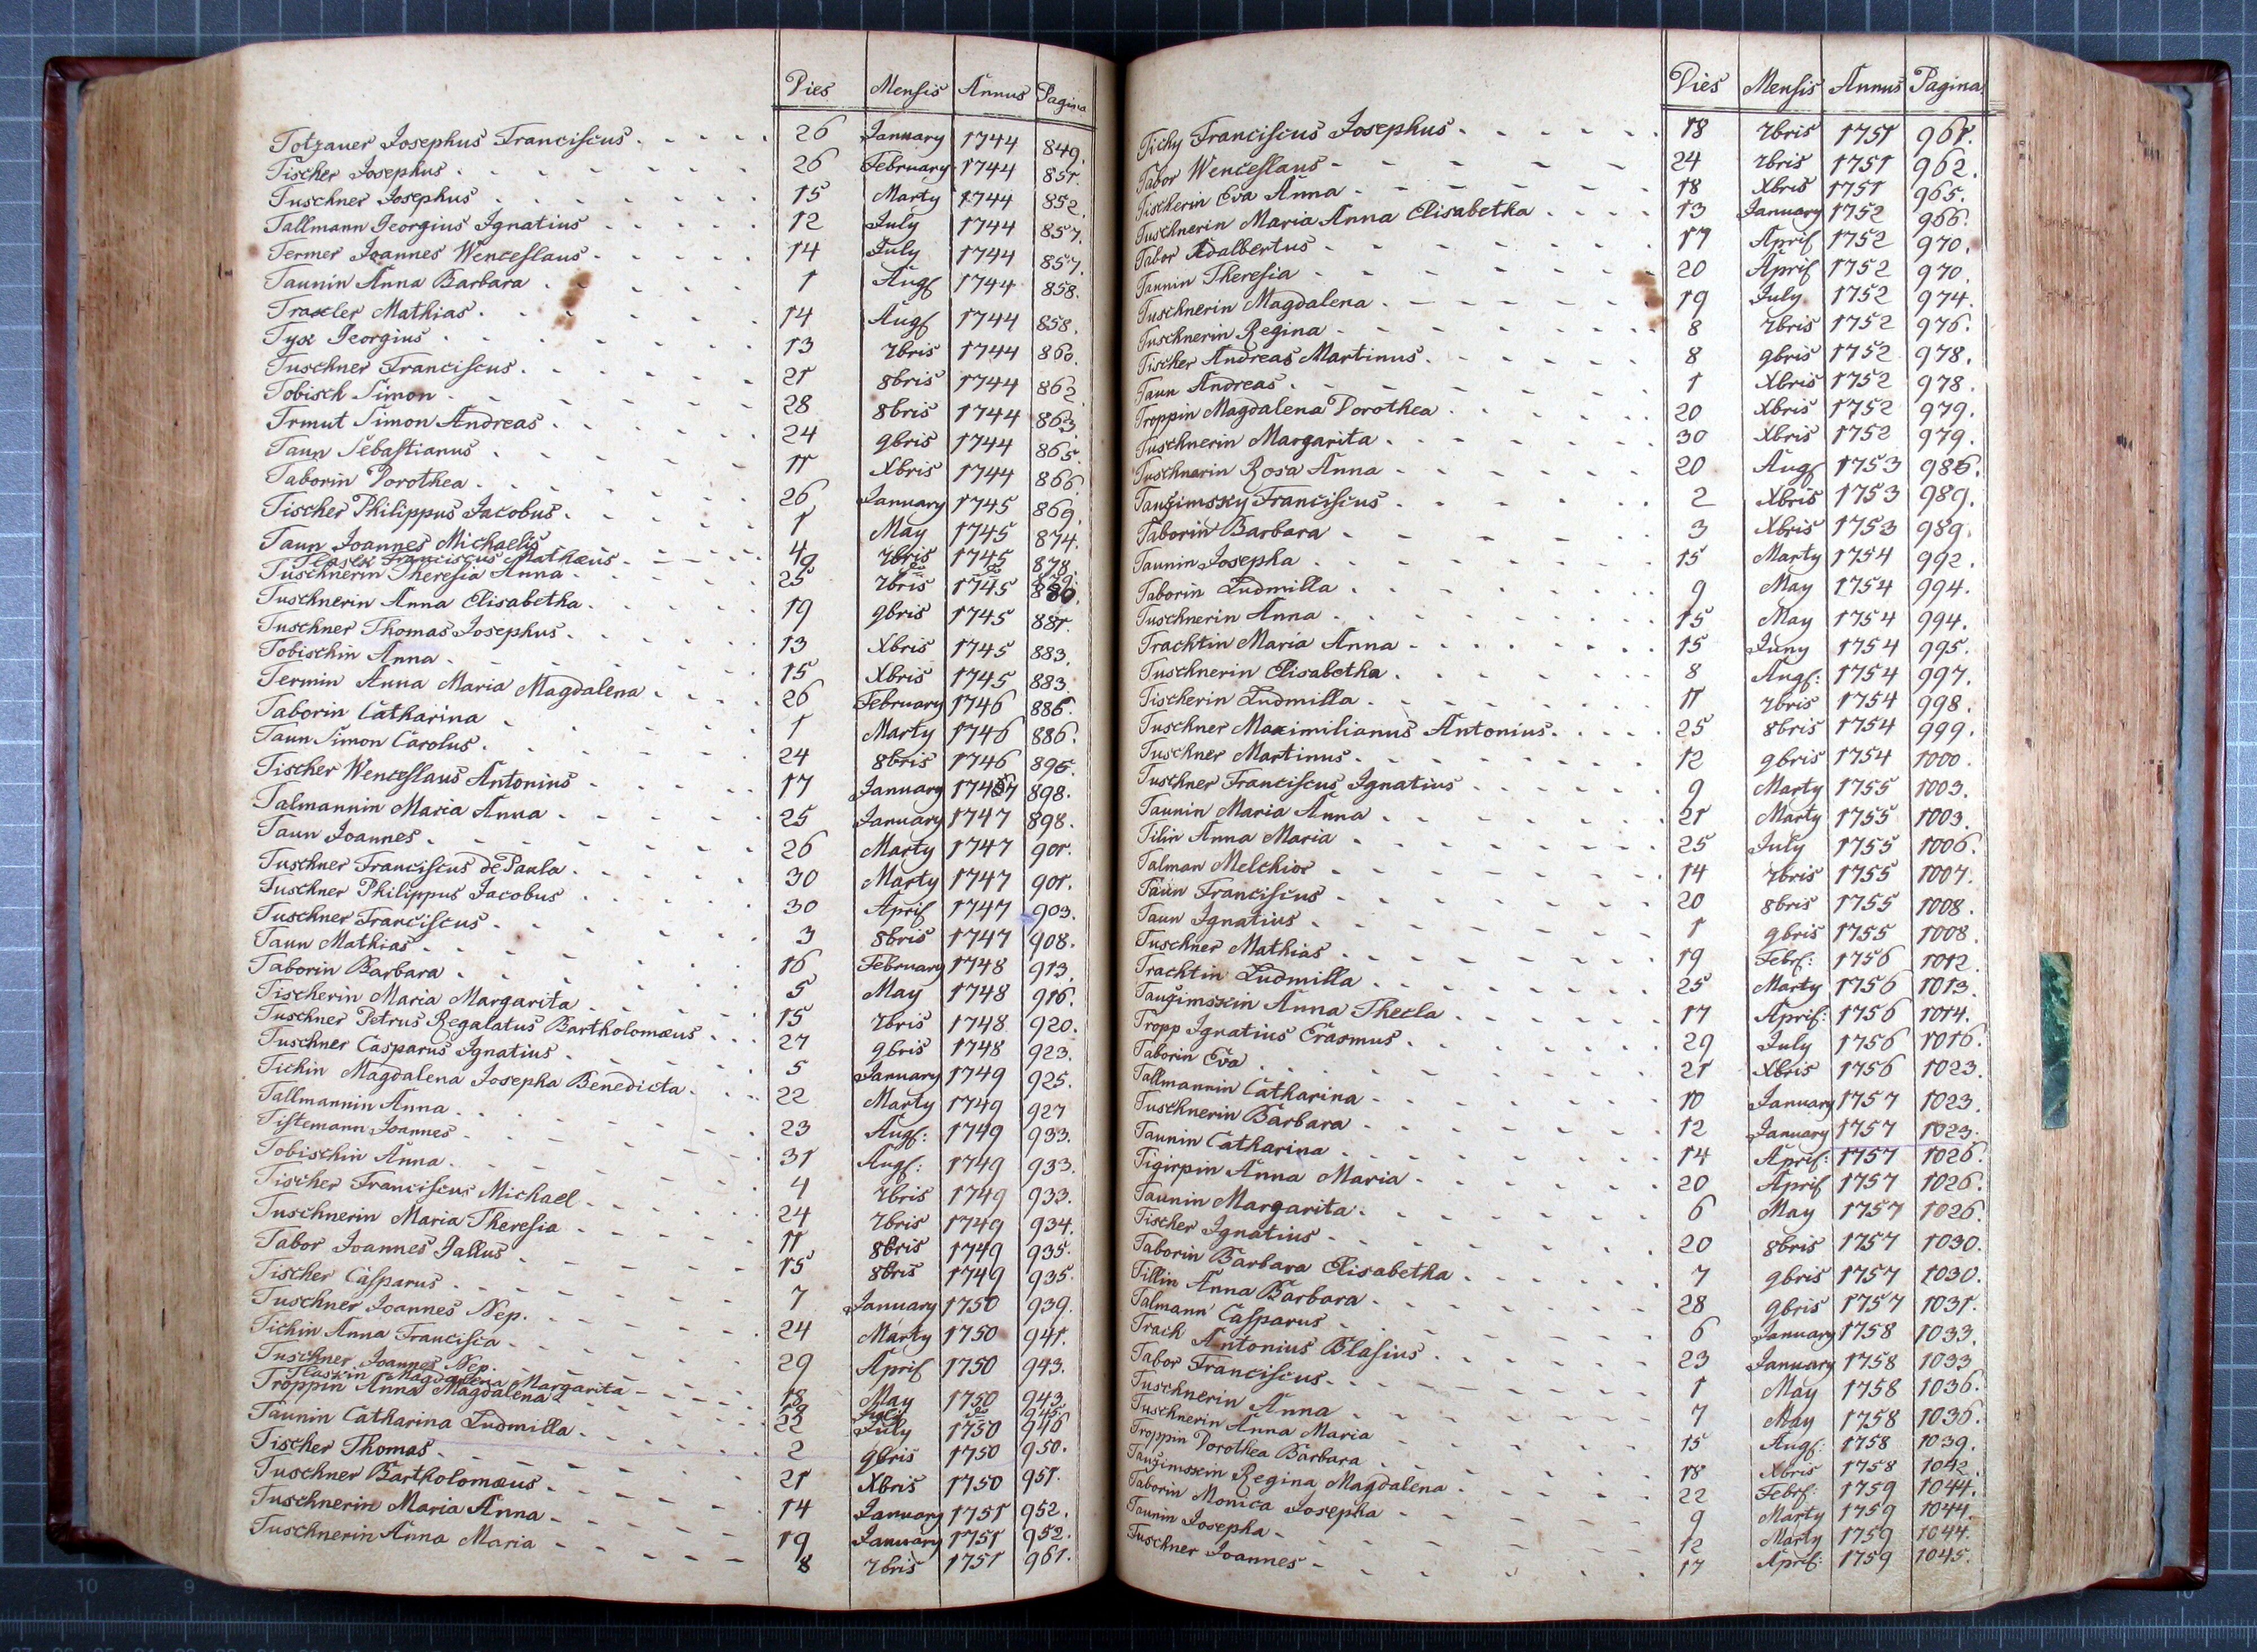 Dies Mensis Annus Pagina
Totzauer Josephus Franciscus 26 January 1744 849.
Tischer Josephus 26 February 1744 851.
Tuschner Josephus 15 Marty 1744 852.
Tallmann Georgius Ignatius 12 July 1744 857.
Termer Joannes Wenceslaus 14 July 1744 857.
Taunin Anna Barbara 1 Aug 1744 858.
Traxler Mathias 14 Aug 1744 858.
Tyx Georgius 13 7bris 1744 860.
Tuschner Franciscus 21 8bris 1744 862.
Tobisch Simon 28 8bris 1744 863.
Trmut Simon Andreas 24 9bris 1744 865.
Taun Sebastianus 11 Xbris 1744 866.
Taborin Dorothea 26 January 1745 869.
Tischer Philippus Jacobus 1 May 1745 874.
Taun Joannes Michaelis 4 7bris 1745 878.
Franciscus Mathæus 9 do do 879.
Tuschnerin Theresia Anna 25 7bris 1745 880.
Tuschnerin Anna Elisabetha 19 9bris 1745 881.
Tuschner Thomas Josephus 13 Xbris 1745 883.
Tobischin Anna 15 Xbris 1745 883.
Termin Anna Maria Magdalena 26 February 1746 886.
Taborin Catharina 1 Marty 1746 886.
Taun Simon Carolus 24 8bris 1746 895.
Tischer Wenceslaus Antonius 17 January 1747 898.
Talmannin Maria Anna 25 January 1747 898.
Taun Joannes 26 Marty 1747 901.
Tuschner Franciscus de Paula 30 Marty 1747 901.
Tuschner Philippus Jacobus 30 April 1747 903.
Tuschner Franciscus 3 8bris 1747 908.
Taun Mathias 16 February 1748 913.
Taborin Barbara 5 May 1748 916.
Tischerin Maria Margarita 15 7bris 1748 920.
Tuschner Petrus Regalatus Bartholomæus 27 9bris 1748 923.
Tuschner Casparus Ignatius 5 January 1749 925.
Tichin Magdalena Josepha Benedicta 22 Marty 1749 927
Tallmannin Anna 23 Aug: 1749 933.
Tistemann Joannes 31 Aug: 1749 933.
Tobischin Anna 4 7bris 1749 933.
Tischer Franciscus Michael 24 7bris 1749 934.
Tuschnerin Maria Theresia 11 8bris 1749 935.
Tabor Joannes Gallus 15 8bris 1749 935.
Tischer Casparus 7 January 1750 939.
Tuschner Joannes Nep. 24 Marty 1750 941.
Tichin Anna Francisca 29 April 1750 943.
Tuschner Joannes Nep. 18 May 1750 943.
Tlaskin Magdalena Margarita 19 July do 945.
Troppin Anna Magdalena 22 July 1750 946
Taunin Catharina Ludmilla 2 9bris 1750 950.
Tischer Thomas 21 Xbris 1750 951.
Tuschner Bartholomæus 14 January 1751 952.
Tuschnerin Maria Anna 19 January 1751 952.
Tuschnerin Anna Maria 8 7bris 1751 961.
Dies Mensis Annus Pagina
Tichy Franciscus Josephus 18 7bris 1751 961.
Tabor Wenceslaus 24 7bris 1751 962.
Tischerin Eva Anna 18 Xbris 1751 965.
Tuschnerin Maria Anna Elisabetha 13 January 1752 966.
Tabor Adalbertus 17 April 1752 970.
Taunin Theresia 20 April 1752 970.
Tuschnerin Magdalena 19 July 1752 974.
Tuschnerin Regina 8 7bris 1752 976.
Tischer Andreas Martinus 8 9bris 1752 978.
Taun Andreas 1 Xbris 1752 978.
Troppin Magdalena Dorothea 20 Xbris 1752 979.
Tuschnerin Margarita 30 Xbris 1752 979.
Tuschnerin Rosa Anna 20 Aug 1753 986.
Taužimsky Franciscus 2 Xbris 1753 989.
Taborin Barbara 3 Xbris 1753 989.
Taunin Josepha 15 Marty 1754 992.
Taborin Ludmilla 9 May 1754 994.
Tuschnerin Anna 15 May 1754 994.
Trachtin Maria Anna 15 Juny 1754 995.
Tuschnerin Elisabetha 8 Aug: 1754 997.
Tischerin Ludmilla 11 7bris 1754 998.
Tuschner Maximilianus Antonius 25 8bris 1754 999.
Tuschner Martinus 12 9bris 1754 1000.
Tuschner Franciscus Ignatius 9 Marty 1755 1003.
Taunin Maria Anna 21 Marty 1755 1003.
Tilin Anna Maria 25 July 1755 1006.
Talman Melchior 14 7bris 1755 1007.
Taun Franciscus 20 8bris 1755 1008.
Taun Ignatius 1 9bris 1755 1008.
Tuschner Mathias 19 Febr: 1756 1012.
Trachtin Ludmilla 25 Marty 1756 1013.
Taužimskin Anna Thecla 17 April: 1756 1014.
Tropp Ignatius Erasmus 29 July 1756 1016.
Taborin Eva 21 Xbris 1756 1023.
Tallmannin Catharina 10 January 1757 1023.
Tuschnerin Barbara 12 January 1757 1023.
Taunin Catharina 14 April: 1757 1026.
Tigirpin Anna Maria 20 April 1757 1026.
Taunin Margarita 6 May 1757 1026.
Tischer Ignatius 20 8bris 1757 1030.
Taborin Barbara Elisabetha 7 9bris 1757 1030.
Tillin Anna Barbara 28 9bris 1757 1031.
Talmann Casparus 6 January 1758 1033.
Trach Antonius Blasius 23 January 1758 1033
Tabor Franciscus 1 May 1758 1036.
Tuschnerin Anna 7 May 1758 1036.
Tuschnerin Anna Maria 15 Aug: 1758 1039.
Troppin Dorothea Barbara 18 Xbris 1758 1042.
Taužimskin Regina Magdalena 22 Febr: 1759 1044.
Taborin Monica Josepha 9 Marty 1759 1044.
Taunin Josepha 12 Marty 1759 1044.
Tuschner Joannes 17 April: 1759 1045.